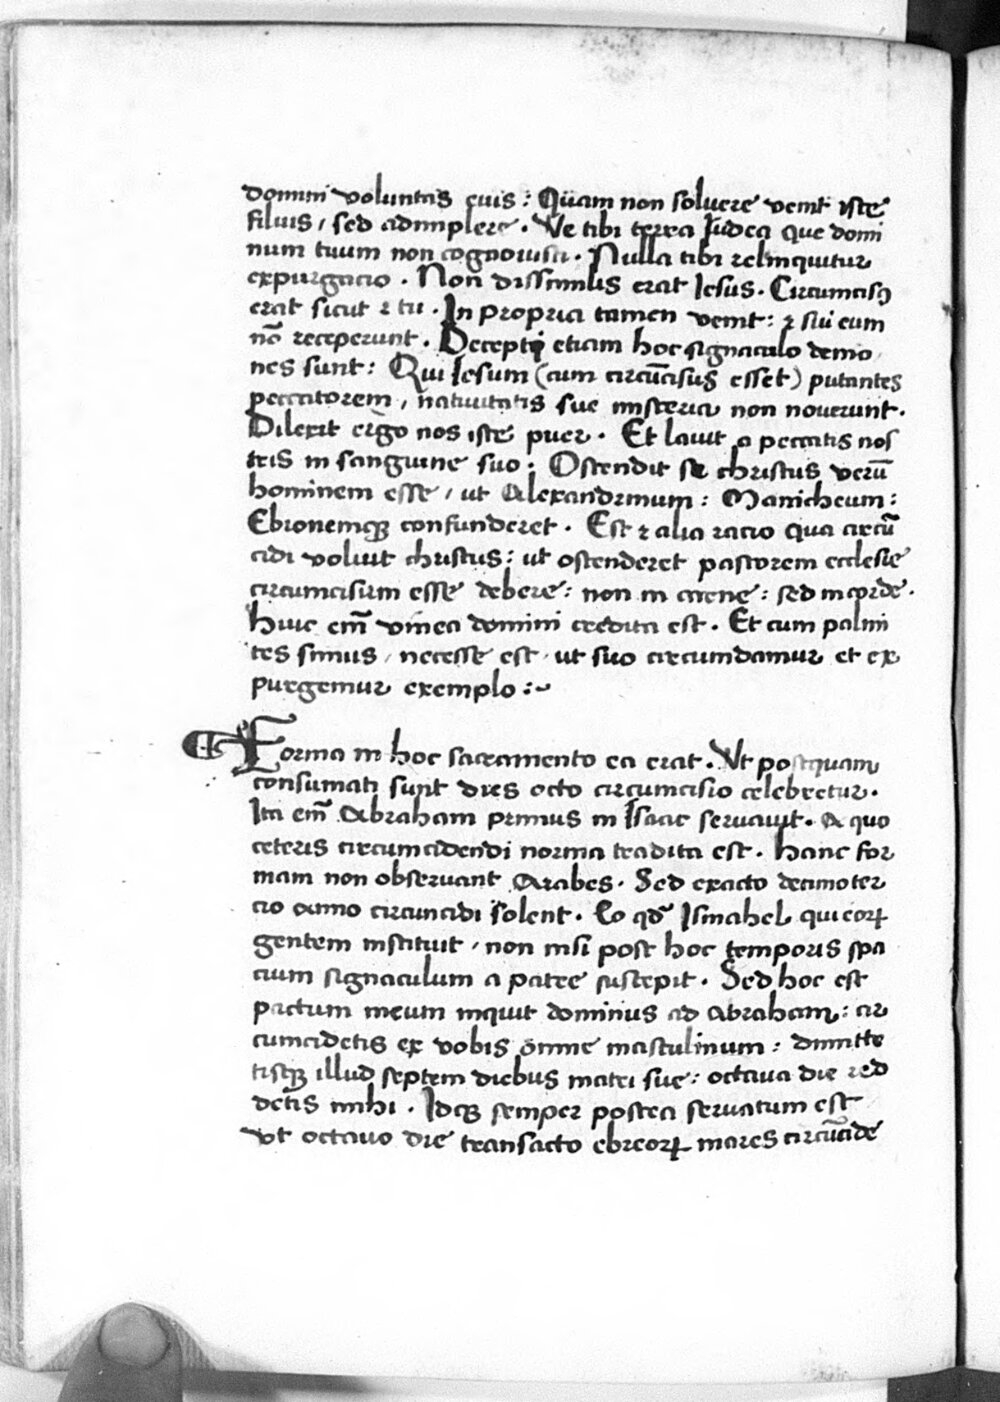 domini voluntas euis : Quam non soluere venit iste
filius / sed adimplere . Ve tibi terra Judea que domi
num tuum non cognouisti . Nulla tibi relinquitur
expurgacio . Non dissimilis erat Jesus . Circumcisꝰ
erat sicut ⁊ tu . In propria tamen venit : ⁊ sui eum
nō receperunt . Decepti etiam hoc signaculo demo
nes sunt : Qui Jesum (cum circūcisus esset) putantes
peccatorem / natiuitatis sue misteria non nouerunt .
Dilexit ergo nos iste puer . Et lauit a peccatis nos
tris in sanguine suo . Ostendit se christus verū
hominem esse / ut Alexandrinum : Manicheum :
Ebionemqꝫ confunderet . Est ⁊ alia racio qua circū
cidi voluit christus : ut ostenderet pastorem ecclesie
circumcisum esse debere : non in carne : sed in corde .
Huic em̄ vinea domini credita est . Et cum palmi
tes simus / necesse est / ut suo circumdamur et ex
purgemur exemplo :~
Forma in hoc sacramento ea erat . Ut postquam
consumati sunt dies octo circumcisio celebretur .
Ita em̄ Abraham primus in Isaac seruauit . A quo
ceteris circumcidendi norma tradita est . Hanc for
mam non obseruant Arabes . Sed exacto decimoter
cio anno circumcidi solent . Eo qd̄ Ismahel qui eoꝝ
gentem instituit / non nisi post hoc temporis spa
cium signaculum a patre suscepit . Sed hoc est
pactum meum inquit dominus ad Abraham : cir
cumcidetis ex vobis omne masculinum : dimitte
tisqꝫ illud septem diebus matri sue : octaua die red
detis mihi . Idqꝫ semper postea seruatum est
vt octauo die transacto ebreoꝝ mares circūcide